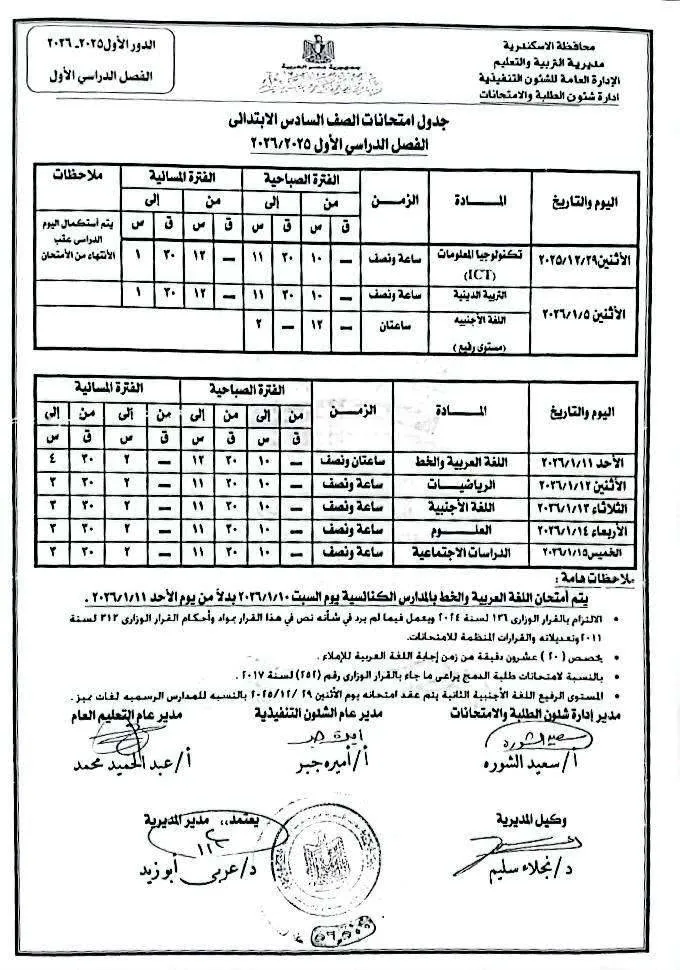 محافظة الاسكندرية
مديرية التربية والتعليم
الإدارة العامة للشئون التنفيذية
إدارة شئون الطلبة والامتحانات
الدور الأول ٢٠٢٥ـ ٢٠٢٦
الفصل الدراسي الأول
جدول امتحانات الصف السادس الابتدائى
الفصل الدراسي الأول ٢٠٢٦/٢٠٢٥
اليوم والتاريخ المــــادة الزمـن الفترة الصباحية الفترة المسائية ملاحظات
من إلى من إلى
ق س ق س ق س ق س
الأثنين ٢٠٢٥/١٢/٢٩ تكنولوجيا المعلومات (ICT) ساعة ونصف — ١٠ ٣٠ ١١ — ١٢ ٣٠ ١ يتم أستكمال اليوم الدراسى عقب الأنتهاء من الأمتحان
الأثنين ٢٠٢٦/١/٥ التربية الدينية ساعة ونصف — ١٠ ٣٠ ١١ — ١٢ ٣٠ ١
اللغة الأجنبيه (مستوى رفيع) ساعتان — ١٢ — ٢
اليوم والتاريخ المــــادة الزمـن الفترة الصباحية الفترة المسائية
من إلى من إلى من إلى
ق س ق س ق س ق س
الأحد ٢٠٢٦/١/١١ اللغة العربية والخط ساعتان ونصف — ١٠ ٣٠ ١٢ — ٢ ٣٠ ٤
الأثنين ٢٠٢٦/١/١٢ الرياضيـــات ساعة ونصف — ١٠ ٣٠ ١١ — ٢ ٣٠ ٣
الثلاثاء ٢٠٢٦/١/١٣ اللغة الأجنبية ساعة ونصف — ١٠ ٣٠ ١١ — ٢ ٣٠ ٣
الأربعاء ٢٠٢٦/١/١٤ العلـــوم ساعة ونصف — ١٠ ٣٠ ١١ — ٢ ٣٠ ٣
الخميس ٢٠٢٦/١/١٥ الدراسات الاجتماعية ساعة ونصف — ١٠ ٣٠ ١١ — ٢ ٣٠ ٣
ملاحظات هامة :
يتم أمتحان اللغة العربية والخط بالمدارس الكنائسية يوم السبت ٢٠٢٦/١/١٠ بدلاً من يوم الأحد ٢٠٢٦/١/١١ .
• الالتزام بالقرار الوزارى ١٣٦ لسنة ٢٠٢٤ ويعمل فيما لم يرد في شأنه نص في هذا القرار بمواد وأحكام القرار الوزارى ٣١٣ لسنة
٢٠١١ وتعديلاته والقرارات المنظمة للامتحانات.
• يخصص (٢٠) عشرون دقيقة من زمن إجابة اللغة العربية للإملاء .
• بالنسبة لامتحانات طلبة الدمج يراعى ما جاء بالقرار الوزارى رقم (٢٥٢) لسنة ٢٠١٧ .
• المستوى الرفيع اللغة الأجنبية الثانية يتم عقد امتحانه يوم الأثنين ٢٩ /٢٠٢٥/١٢ بالنسبه للمدارس الرسميه لغات مميز .
مدير إدارة شئون الطلبة والامتحانات مدير عام الشئون التنفيذية مدير عام التعليم العام
أ/ سعيد الشوره أ/ أميره جبر أ/ عبد الحميد محمد
وكيل المديرية يعتمد،، مدير المديرية
د/ نجلاء سليم د/ عربى أبوزيد